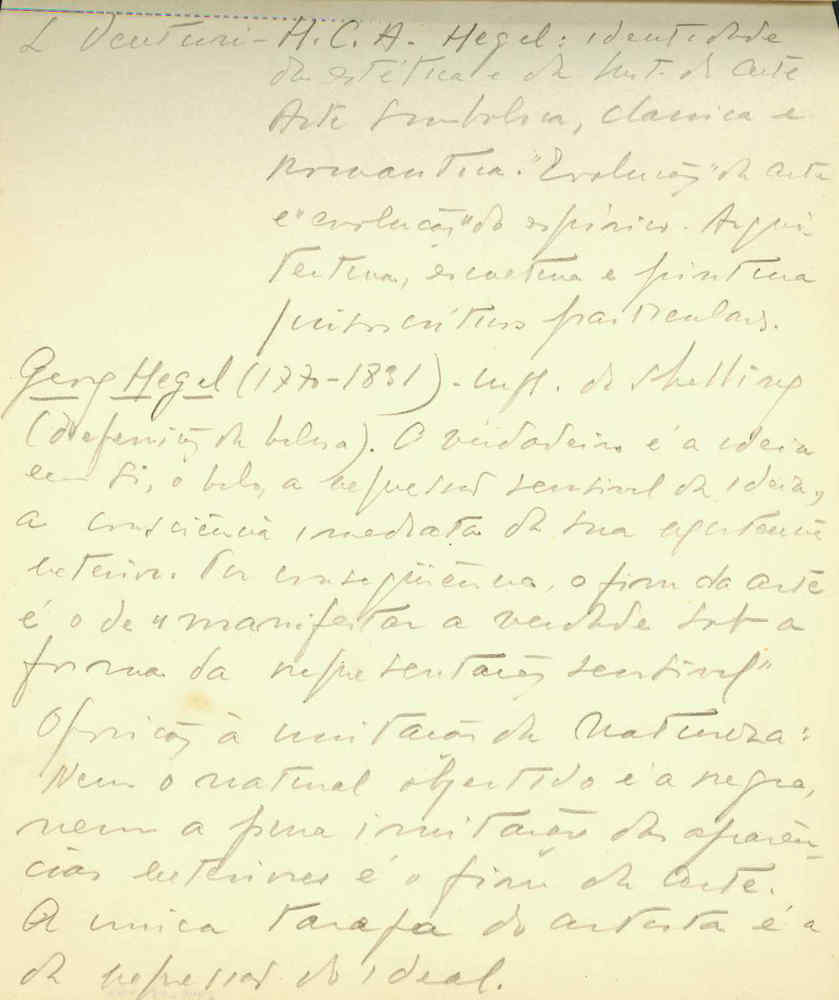 L Venturi - H.C.A. Hegel: identidade
da estética e da hist. da arte
Arte simbolica, classica e
romantica. "Evolução" da arte
e "evolução" do espirito. Arqui-
tectura, escultura e pintura
particulares.
Georg Hegel (1770-1831). infl. de Shelling
(definição da beleza). O verdadeiro é a ideia
em si, o belo, a expressão sensivel da ideia,
a consciência imediata da sua existencia
exterior. Por conseqüência, o fim da arte
é o de "manifestar a verdade sob a
forma da representação sensivel"
Oposição à imitação da natureza:
Nem o natural objectivo é a regra,
nem a pura imitação das aparên-
cias exteriores é o fim da arte.
A unica tarefa do artista é a
da expressão do ideal.